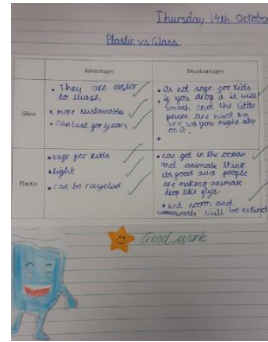 Thursday 14th October
Plastic vs Glass
Advantages
Disadvantages
Glass
• They are easier
to wash
• more sustainable
• can last for years
• its not safe for kids
• if you drop it it will
smash and the little
pieces are hard to
see so you might step
on it.
Plastic
• safe for kids
• light
• can be recycled
• can get in the ocean
and animals think
its food and people
are making animals
drop like flys.
• And soon and
animals will be extinct
Good work